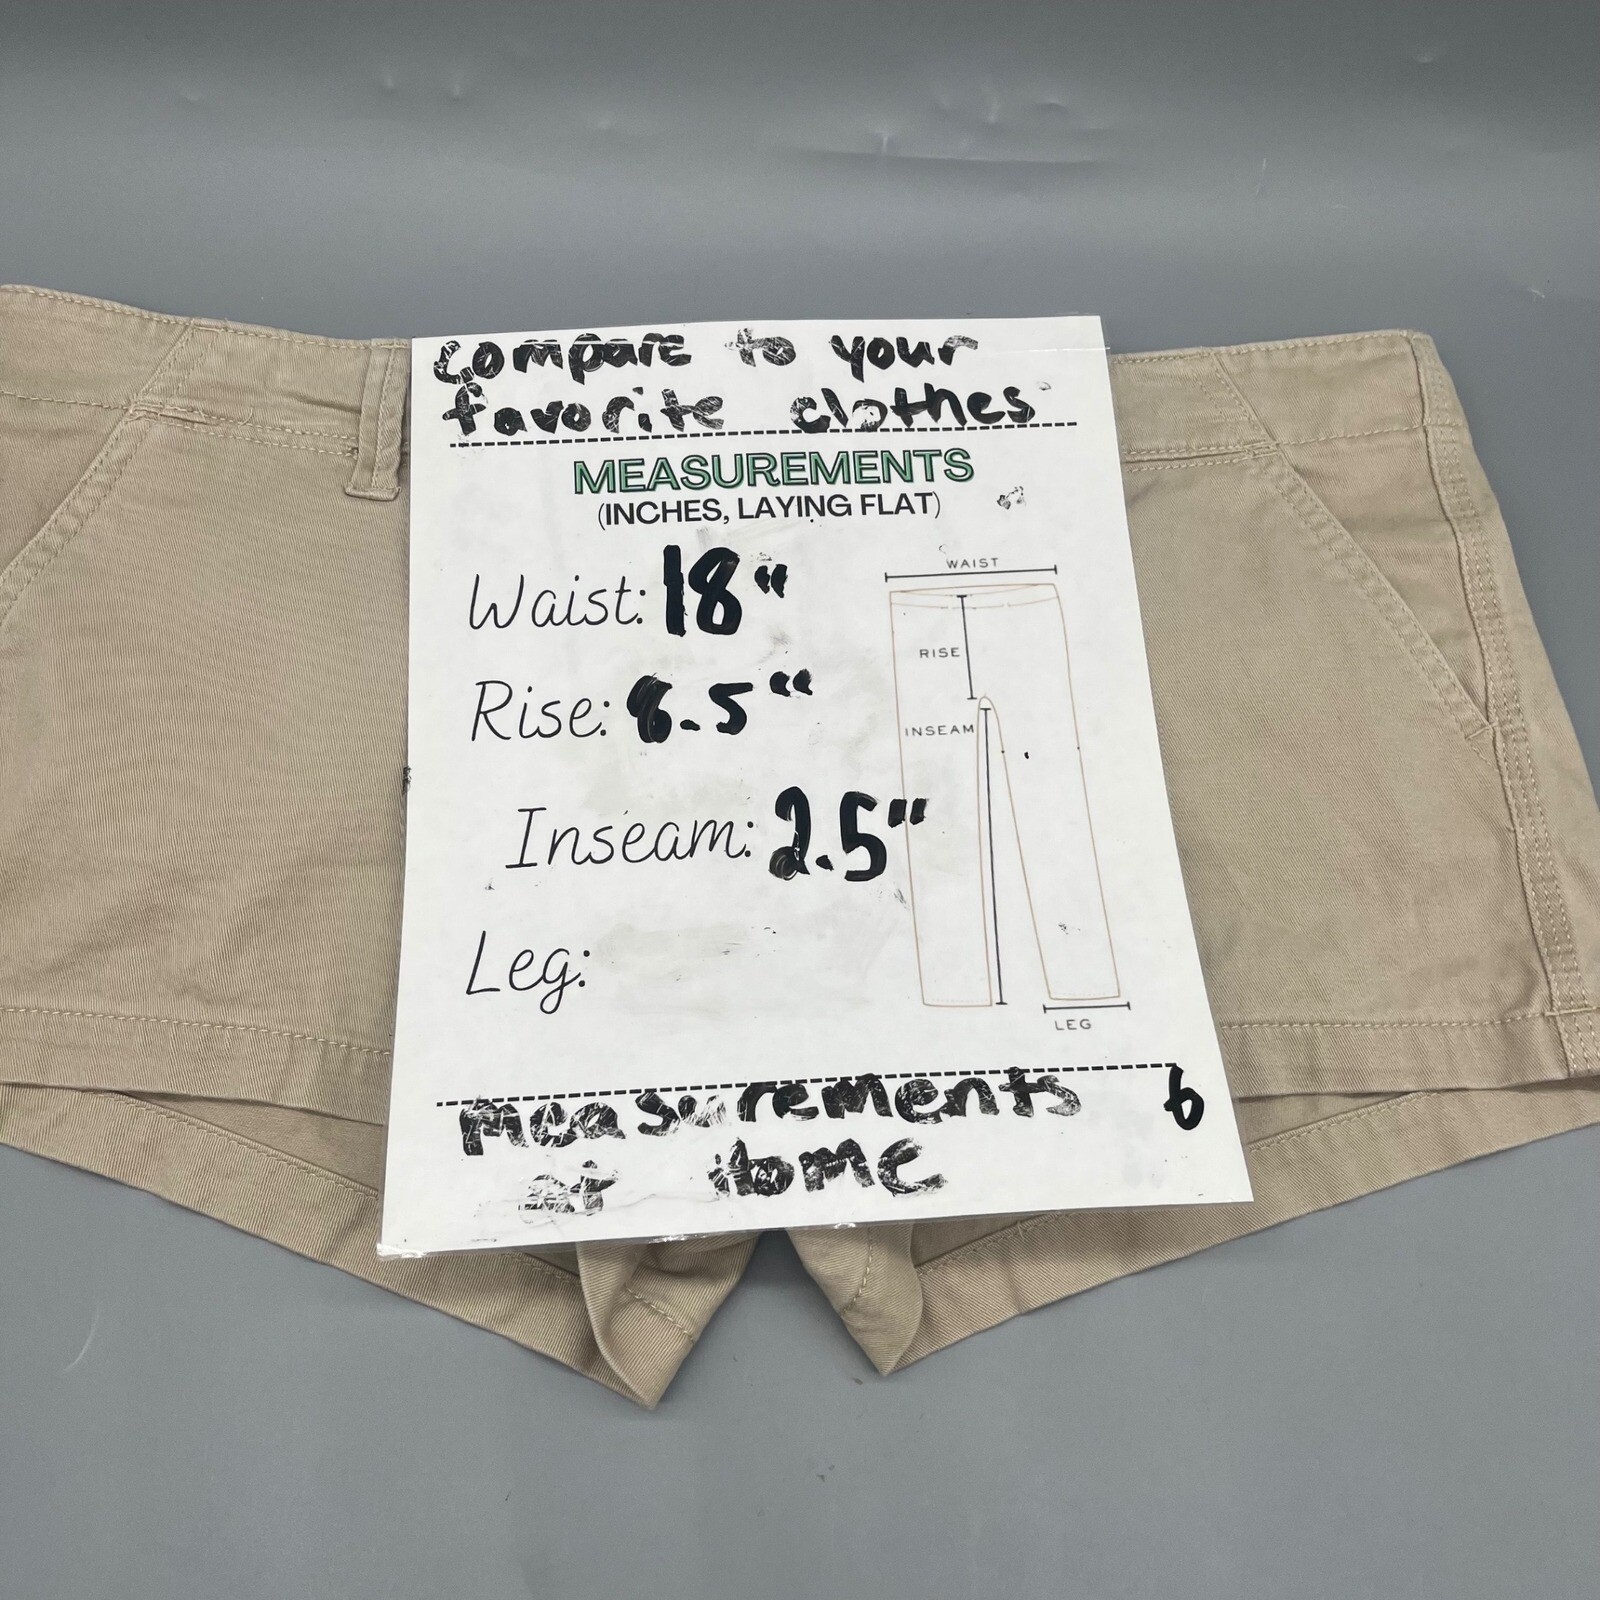 compare to your
favorite clothes
MEASUREMENTS
(INCHES, LAYING FLAT)
Waist: 18"
Rise: 8.5"
Inseam: 2.5"
Leg:
WAIST
RISE
INSEAM
LEG
Measurements 6
at Home